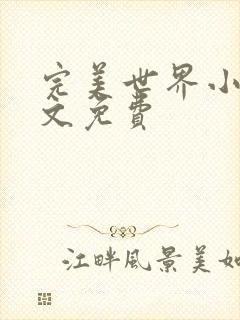 完美世界小
文免費
江畔风景美如